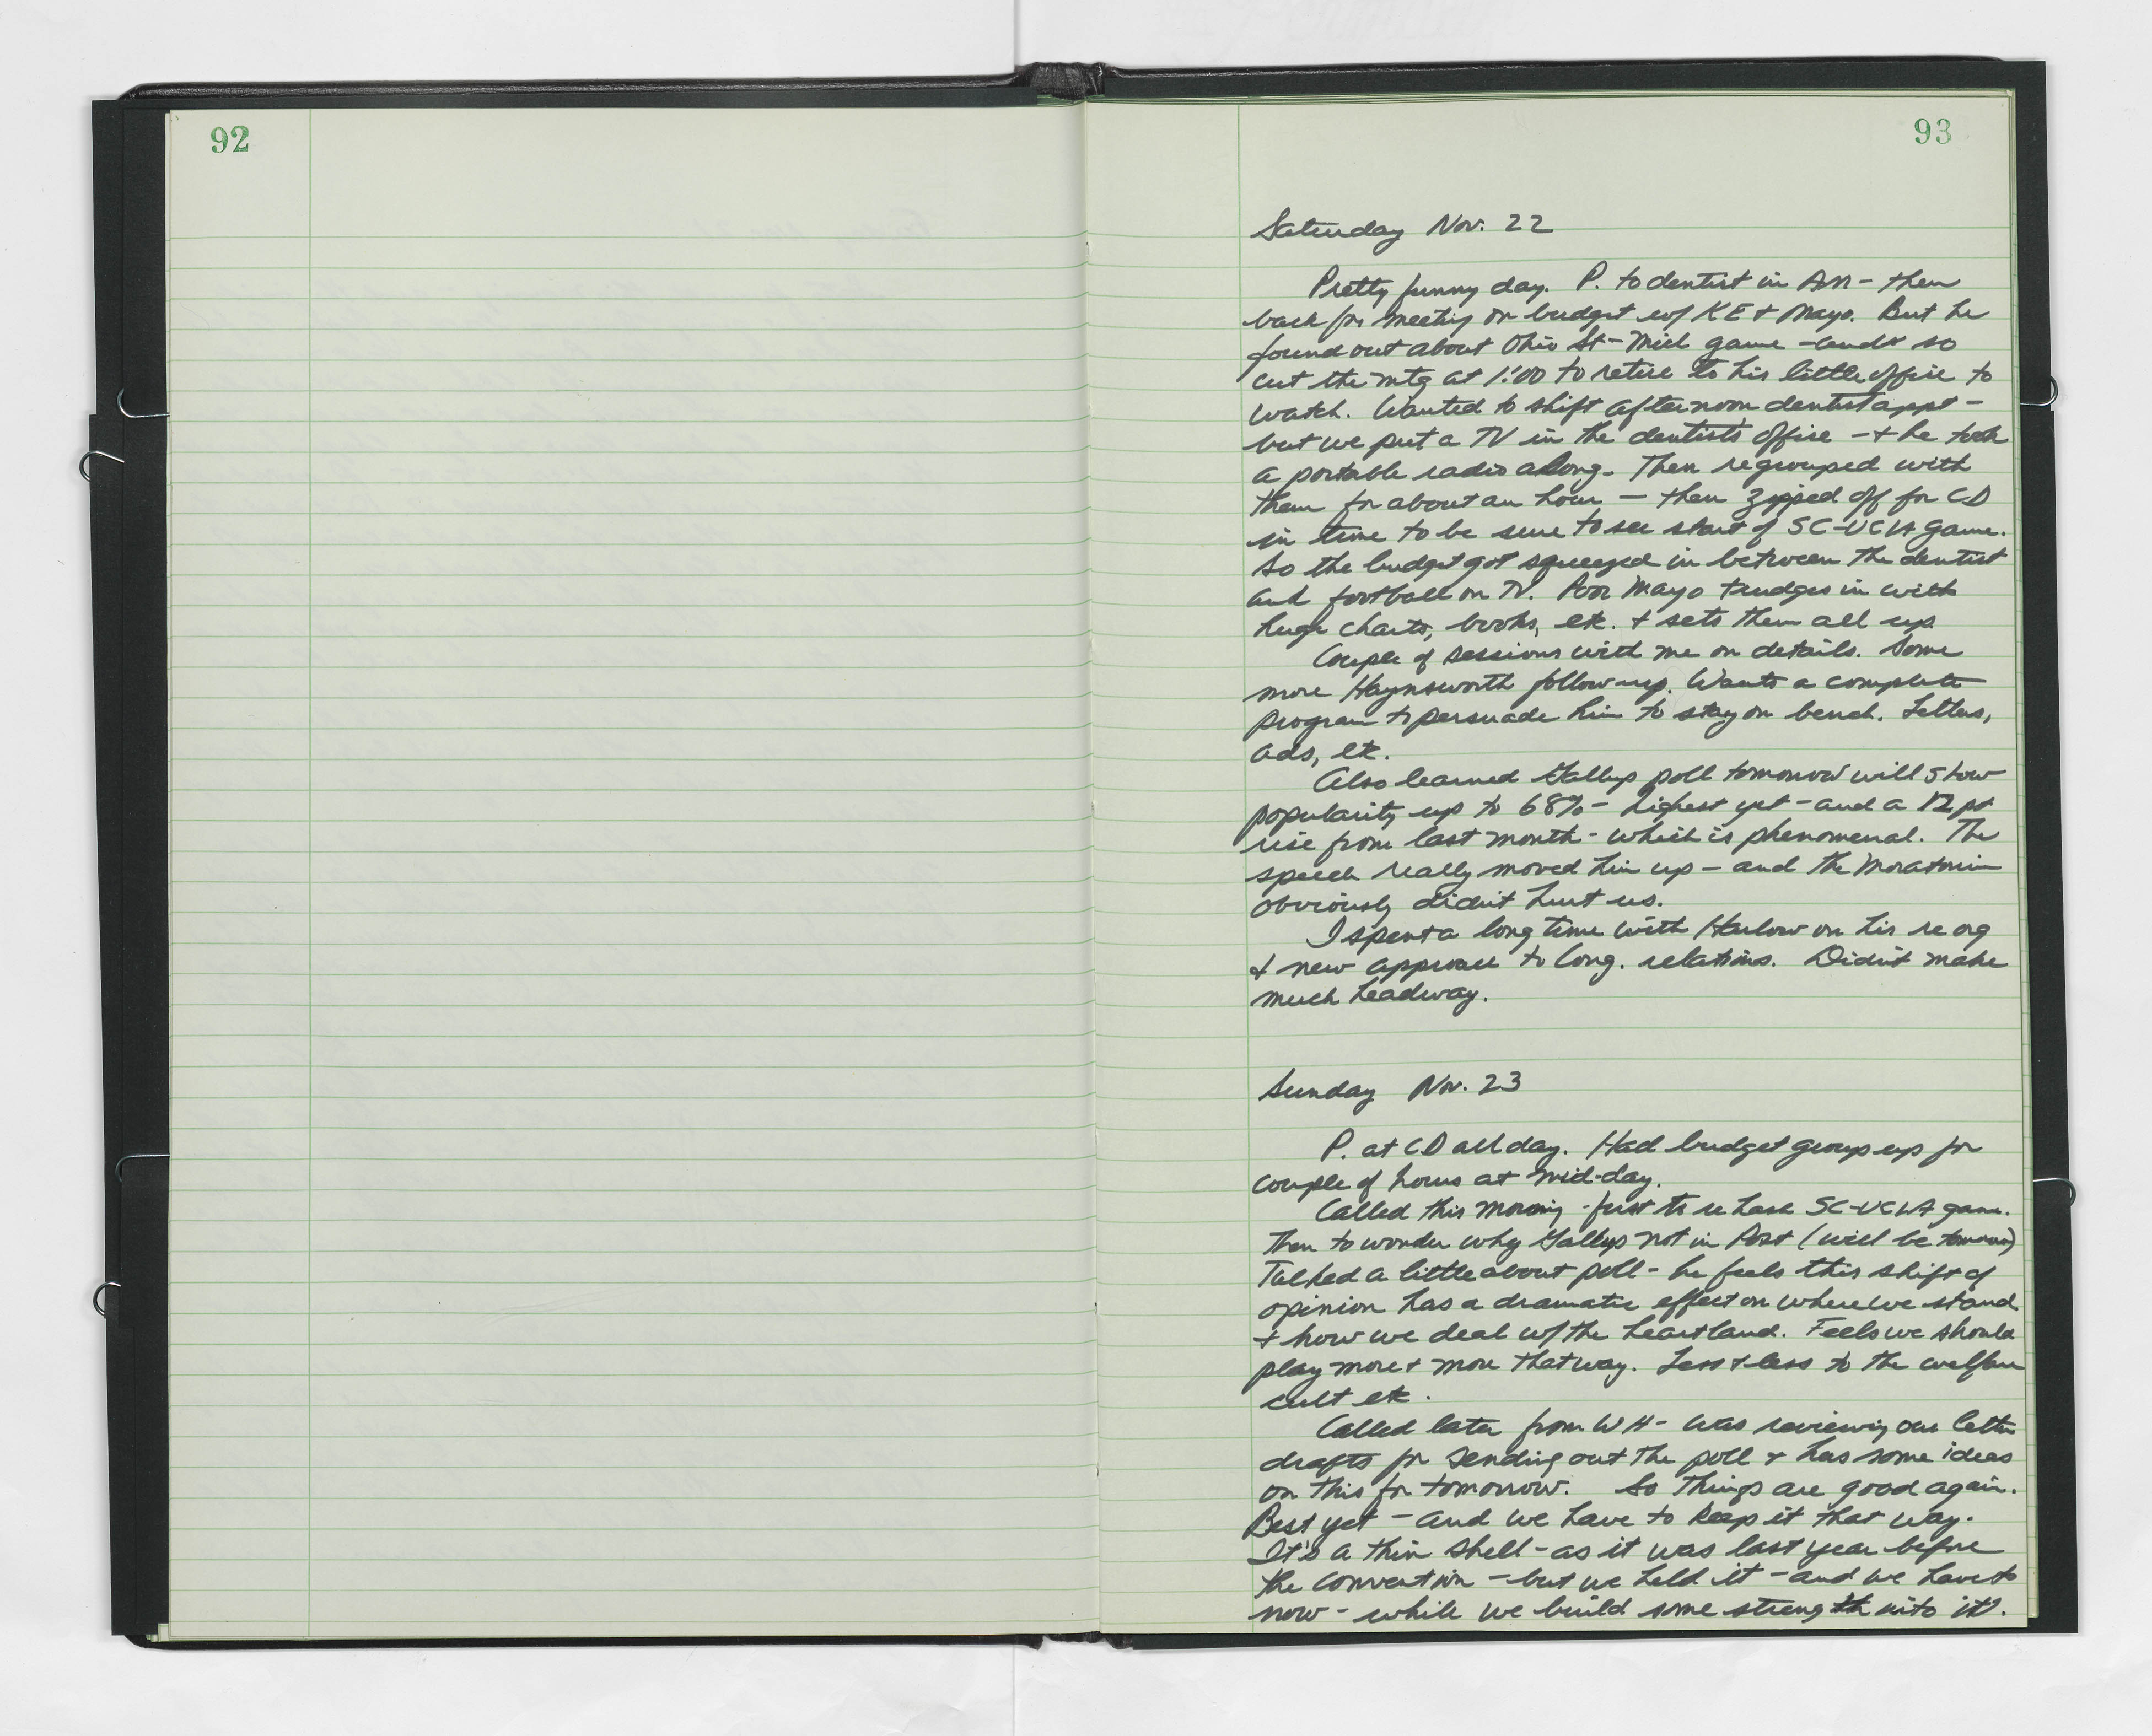 92
93
Saturday Nov. 22
Pretty funny day. P. to dentist in AM - then
back for meeting on budget w/ KE + Mayo. But he
found out about Ohio St - Mich game - and so
cut the mtg at 1:00 to retire to his little office to
watch. Wanted to shift afternoon dentist appt -
but we put a TV in the dentist's office - + he took
a portable radio along. Then regrouped with
them for about an hour — then zipped off for CD
in time to be sure to see start of SC-UCLA game.
So the budget got squeezed in between the dentist
and football on TV. Poor Mayo trudges in with
huge charts, books, etc. + sets them all up.
Couple of sessions with me on details. Some
more Haynsworth follow-up. Wants a complete
program to persuade him to stay on bench. Letters,
ads, etc.
Also learned Gallup poll tomorrow will show
popularity up to 68% - highest yet - and a 12 pt
rise from last month - which is phenomenal. The
speech really moved him up - and the Moratorium
obviously didn't hurt us.
I spent a long time with Harlow on his re org
+ new approach to Cong. relations. Didn't make
much headway.
Sunday Nov. 23
P. at CD all day. Had budget group up for
couple of hours at mid-day.
Called this morning - first to re hash SC-UCLA game.
Then to wonder why Gallup not in Post (will be tomorrow)
Talked a little about poll - he feels this shift of
opinion has a dramatic effect on where we stand
+ how we deal w/ the heartland. Feels we should
play more + more that way. Less + less to the welfare
cult etc.
Called later from WH - was reviewing our letter
drafts for sending out the poll + has some ideas
on this for tomorrow. So things are good again.
Best yet - and we have to keep it that way.
It's a thin shell - as it was last year before
the convention - but we held it - and we have to
now - while we build some strength into it.